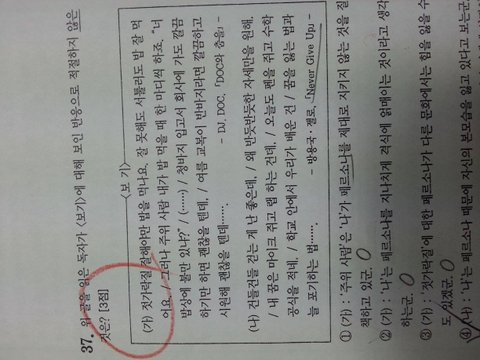 37. 윗 글을 읽은 독자가 <보기>에 대해 보인 반응으로 적절하지 않은
것은? [3점]
<보 기>
(가) 젓가락질 잘해야만 밥을 먹나요. 잘 못해도 서툴러도 밥 잘 먹
어요. / 그러나 주위 사람 내가 밥 먹을 때 한 마디씩 하죠. "너
밥상에 불만 있냐?" / (……) / 청바지 입고서 회사에 가도 깔끔
하기만 하면 괜찮을 텐데. / 여름 교복이 반바지라면 깔끔하고
시원해 괜찮을 텐데…….
- DJ. DOC, 「DOC와 춤을」 -
(나) 건들건들 걷는 게 난 좋은데, / 왜 반듯반듯한 자세만을 원해.
/ 내 꿈은 마이크 쥐고 랩 하는 건데, / 오늘도 펜을 쥐고 수학
공식을 적네, / 학교 안에서 우리가 배운 건 / 꿈을 잃는 법과
늘 포기하는 법…….
- 방용국·젤로, 「Never Give Up」 -
① (가) : '주위 사람'은 '나'가 페르소나를 제대로 지키지 않는 것을 질
책하고 있군.
② (가) : '나'는 페르소나를 지나치게 격식에 얽매이는 것이라고 생각
하는군.
③ (가) : '젓가락질'에 대한 페르소나가 다른 문화에서는 힘을 잃을 수
도 있겠군.
④ (나) : '나'는 페르소나 때문에 자신의 본모습을 잃고 있다고 보는군.